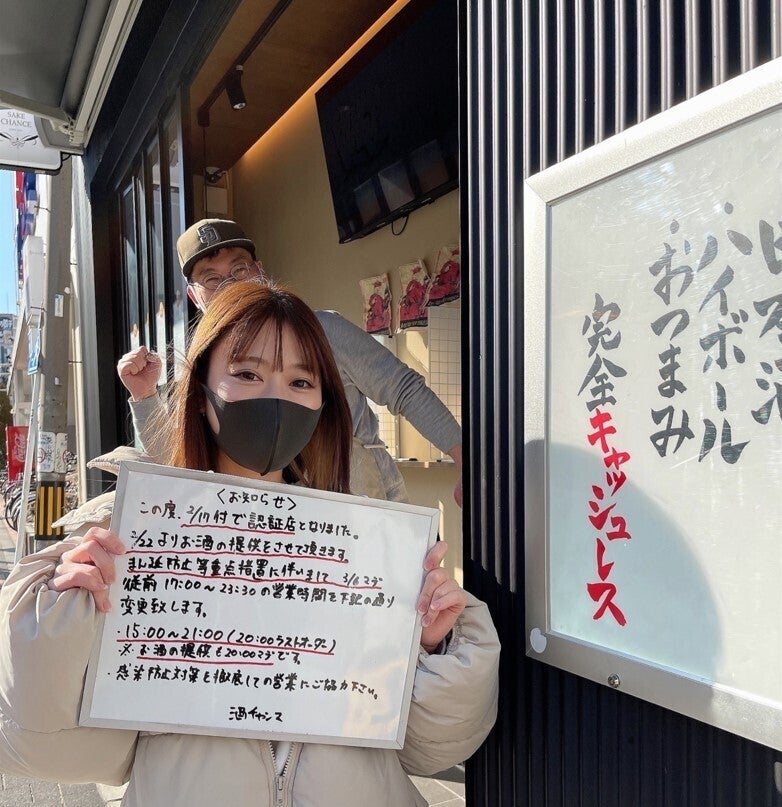 SAKE
CHANCE
SD
〈お知らせ〉
この度、2/17付で認証店となりました。
2/22よりお酒の提供をさせて頂きます。
まん延防止等重点措置に伴いまして 3/6マデ
従前 17:00〜23:30の営業時間を下記の通り
変更致します。
・15:00〜21:00(20:00ラストオーダー)
※お酒の提供も20:00マデです。
・感染防止対策を徹底しての営業にご協力下さい。
酒チャンス
日本酒
ハイボール
おつまみ
完全キャッシュレス